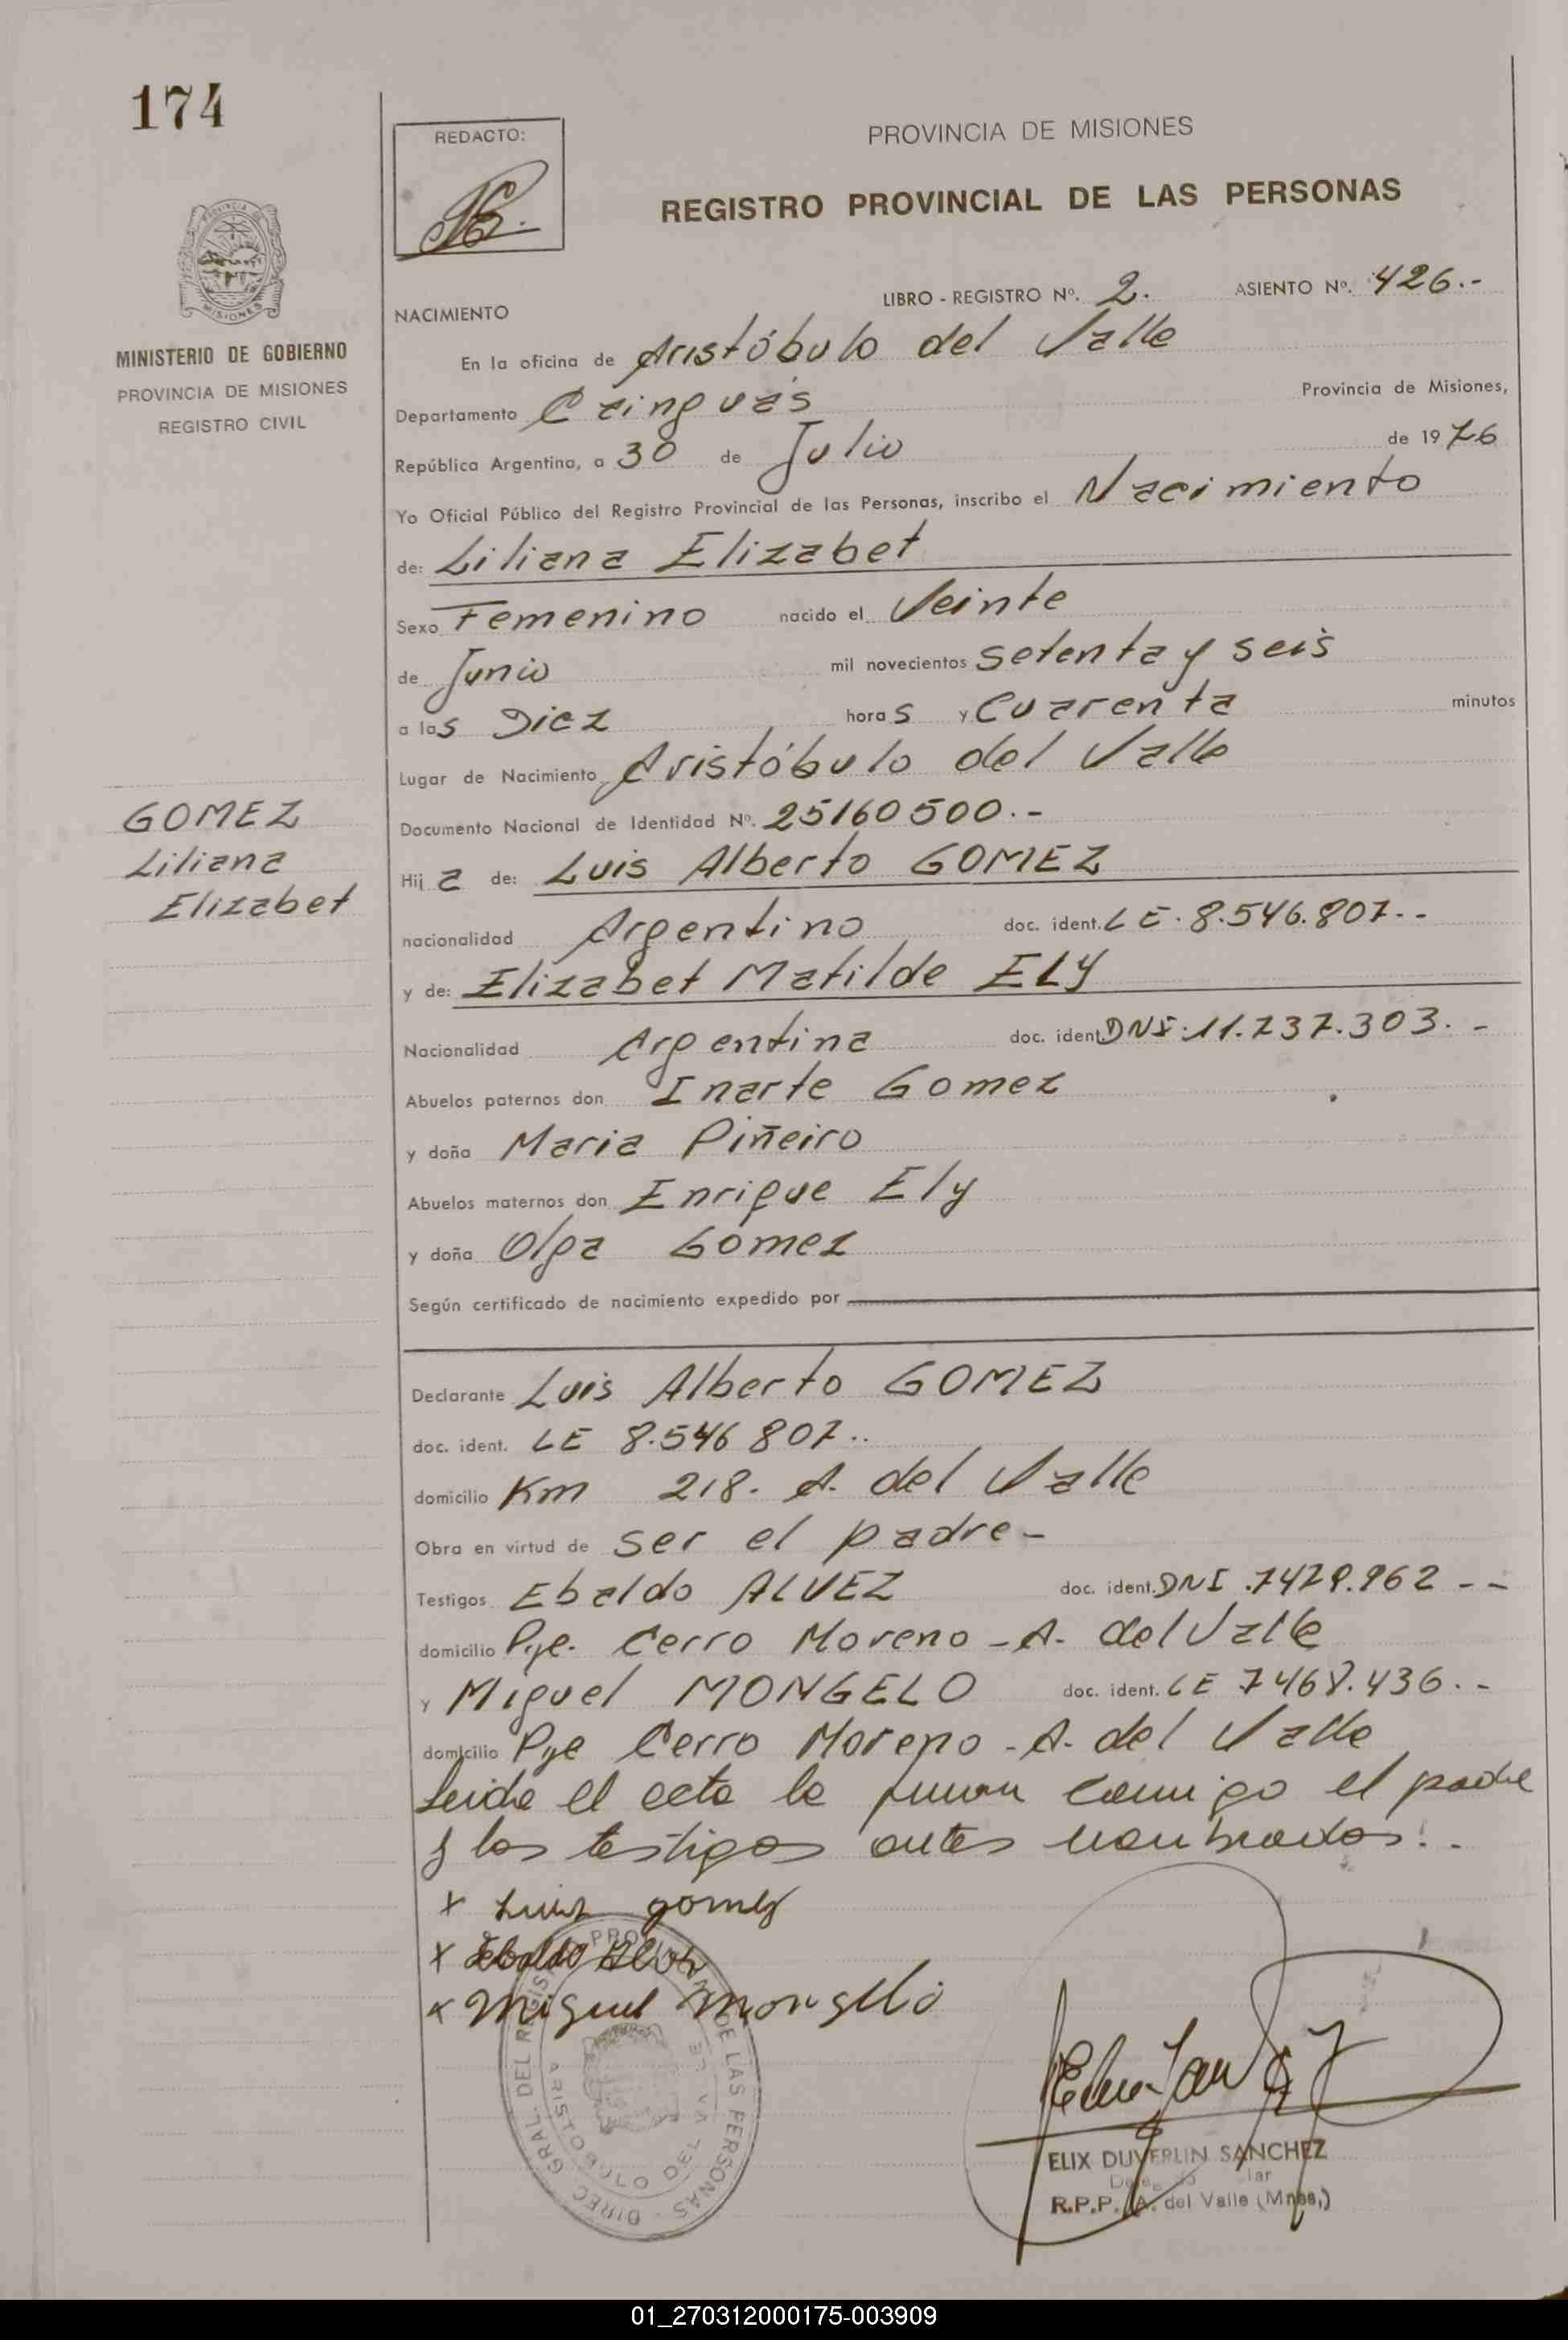 174
REDACTO:
PROVINCIA DE MISIONES
REGISTRO PROVINCIAL DE LAS PERSONAS
PROVINCIA DE
MISIONES
MINISTERIO DE GOBIERNO
PROVINCIA DE MISIONES
REGISTRO CIVIL
LIBRO - REGISTRO Nº. 2. ASIENTO Nº. 426.-
NACIMIENTO
En la oficina de Aristóbulo del Valle
Departamento Cainguás Provincia de Misiones,
República Argentina, a 30 de Julio de 1976
Yo Oficial Público del Registro Provincial de las Personas, inscribo el Nacimiento
de: Liliana Elizabet
Sexo Femenino nacido el Veinte
de Junio mil novecientos setenta y seis
a las Diez horas y Cuarenta minutos
Lugar de Nacimiento Aristóbulo del Valle
Documento Nacional de Identidad Nº. 25160500.-
GOMEZ
Liliana
Elizabet
Hija de: Luis Alberto GOMEZ
nacionalidad Argentino doc. ident. LE. 8.546.807.-
y de: Elizabet Matilde ELY
Nacionalidad Argentina doc. ident. DNI. 11.737.303.-
Abuelos paternos don Inarte Gomez
y doña Maria Piñeiro
Abuelos maternos don Enrique Ely
y doña Olga Gomez
Según certificado de nacimiento expedido por
Declarante Luis Alberto GOMEZ
doc. ident. LE 8.546 807..
domicilio Km 218. A. del Valle
Obra en virtud de ser el padre-
Testigos Ebaldo ALVEZ doc. ident. DNI .7479.962 --
domicilio Pje. Cerro Moreno - A. del Valle
y Miguel MONGELO doc. ident. LE 7468.436.--
domicilio Pje Cerro Moreno - A. del Valle
Leida el acta la firman conmigo el padre
y los testigos antes nombrados.-
x Luis gomez
x Ebaldo Alvez
x Miguel Mongelo
DIREC. GRAL. DEL REGIST. PROV. DE LAS PERSONAS
ARISTOBULO DEL VALLE
ELIX DUVERLIN SANCHEZ
R.P.P. A. del Valle (Mnes,)
01_270312000175-003909